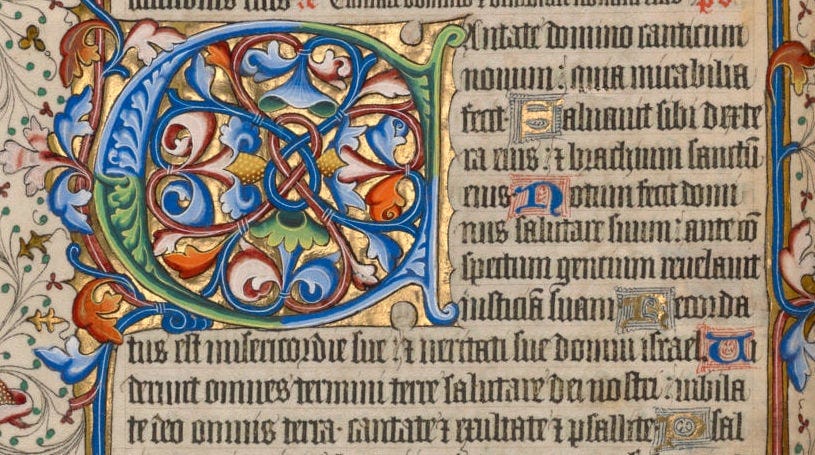 eius
Cantate domino canticum
nouum : quia mirabilia
fecit Saluauit sibi dexte
ra eius : ⁊ brachium sanctū
eius Notum fecit domi
nus salutare suum : ante cō
spectum gentium reuelauit
iusticiā suam Recorda
tus est misericordie sue : ⁊ ueritati sue domui israel Ui
derunt omnes termini terre salutare dei nostri : iubila
te deo omnis terra · cantate ⁊ exultate ⁊ psallite Psal